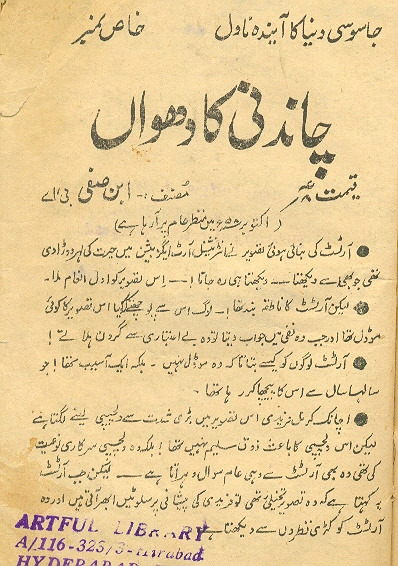 جاسوسی دنیا کا آیندہ ناول خاص نمبر
چاندنی کا دھواں
قیمت مصنف :۔ ابن صفی بی اے
(اکتوبر ۵۸ء میں منظر عام پر آرہا ہے)
● آرٹسٹ کی بنائی ہوئی تصویر نے انٹرنیشنل آرٹ اگزبیشن میں حیرت کی لہر دوڑا دی
تھی جو بھی اسے دیکھتا — دیکھتا ہی رہ جاتا! — اس تصویر کو اول انعام ملا۔
● لیکن آرٹسٹ کا ناطقہ بند تھا۔ لوگ اس سے پوچھتے کیا اس تصویر کا کوئی
موڈل تھا اور جب وہ نفی میں جواب دیتا تو وہ بے اعتباری سے گردن ہلاتے!
● آرٹسٹ لوگوں کو کیسے بتاتا کہ وہ موڈل نہیں۔ بلکہ ایک آسیب تھا! جو
سالہا سال سے اس کا پیچھا کر رہا تھا۔
● اچانک کرنل فریدی اس تصویر میں بڑی شدت سے دلچسپی لینے لگتا ہے
لیکن اس دلچسپی کا باعث ذوق سلیم نہیں تھا! بلکہ وہ دلچسپی سرکاری نوعیت
کی تھی وہ بھی آرٹسٹ سے وہی عام سوال دہراتا ہے — لیکن جب آرٹسٹ
یہ کہتا ہے کہ وہ تصویر تخیلی تھی تو فریدی کی پیشانی پر سلوٹیں ابھر آتی ہیں اور وہ
آرٹسٹ کو کڑی نظروں سے دیکھتا ہے
ARTFUL LIBRARY
A/116-325/3-Hirabad
HYDERABAD